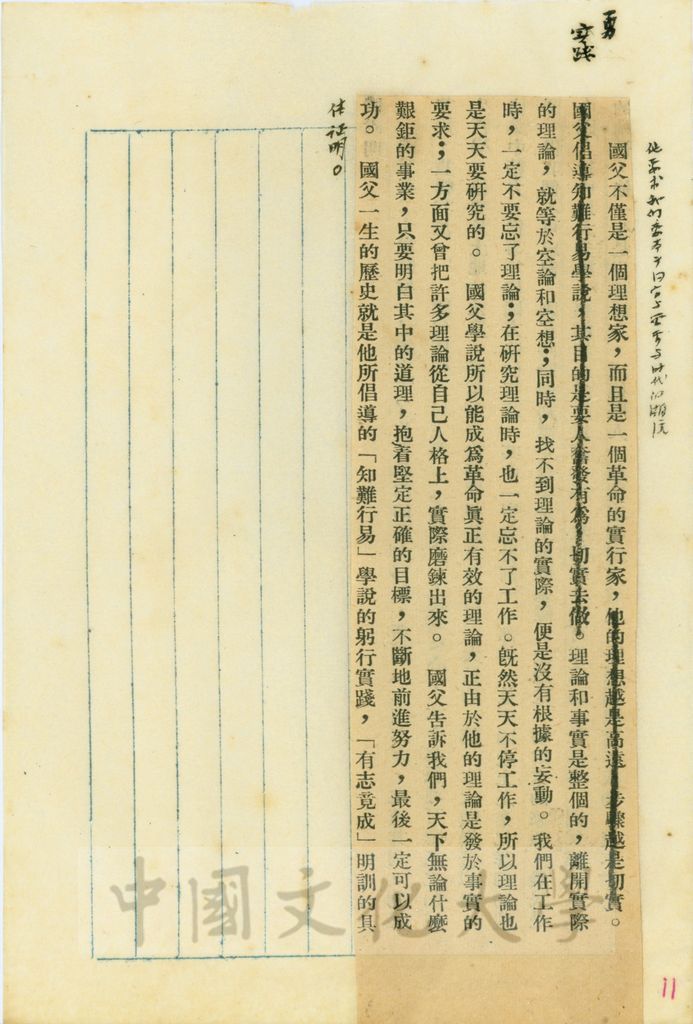 勇
實踐
國父不僅是一個理想家，而且是一個革命的實行家，他的理想越是高遠，步驟越是切實。
國父倡導知難行易學說，其目的是要人奮發有為，切實去做。理論和事實是整個的，離開實際
的理論，就等於空論和空想；同時，找不到理論的實際，便是沒有根據的妄動。我們在工作
時，一定不要忘了理論；在研究理論時，也一定忘不了工作。既然天天不停工作，所以理論也
是天天要研究的。　國父學說所以能成為革命眞正有效的理論，正由於他的理論是發於事實的
要求；一方面又曾把許多理論從自己人格上，實際磨鍊出來。　國父告訴我們，天下無論什麼
艱鉅的事業，只要明白其中的道理，抱着堅定正確的目標，不斷地前進努力，最後一定可以成
功。　國父一生的歷史就是他所倡導的「知難行易」學說的躬行實踐，「有志竟成」明訓的具
体証明。
中國文化大學
11